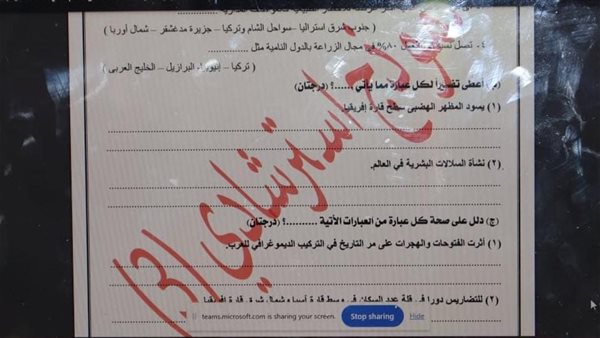 ( جنوب شرق استراليا – سواحل الشام وتركيا – جزيرة مدغشقر – شمال أوربا )
٤- تصل نسبة ٨٠% في مجال الزراعة بالدول النامية مثل
( تركيا – إثيوبيا – البرازيل – الخليج العربى )
(ب) أعطى تفسيراً لكل عبارة مما يأتي .....؟ (درجتان)
(١) يسود المظهر الهضبى سطح قارة إفريقيا.
(٢) نشأة السلالات البشرية في العالم.
(ج) دلل على صحة كل عبارة من العبارات الأتية ..........؟ (درجتان)
(١) أثرت الفتوحات والهجرات على مر التاريخ في التركيب الديموغرافي للعرب.
(٢) للتضاريس دورا في قلة عدد السكان في وسط قارة أسيا وشمال شرق قارة إفريقيا
نموذج استرشادي (٣)
teams.microsoft.com is sharing your screen. Stop sharing Hide